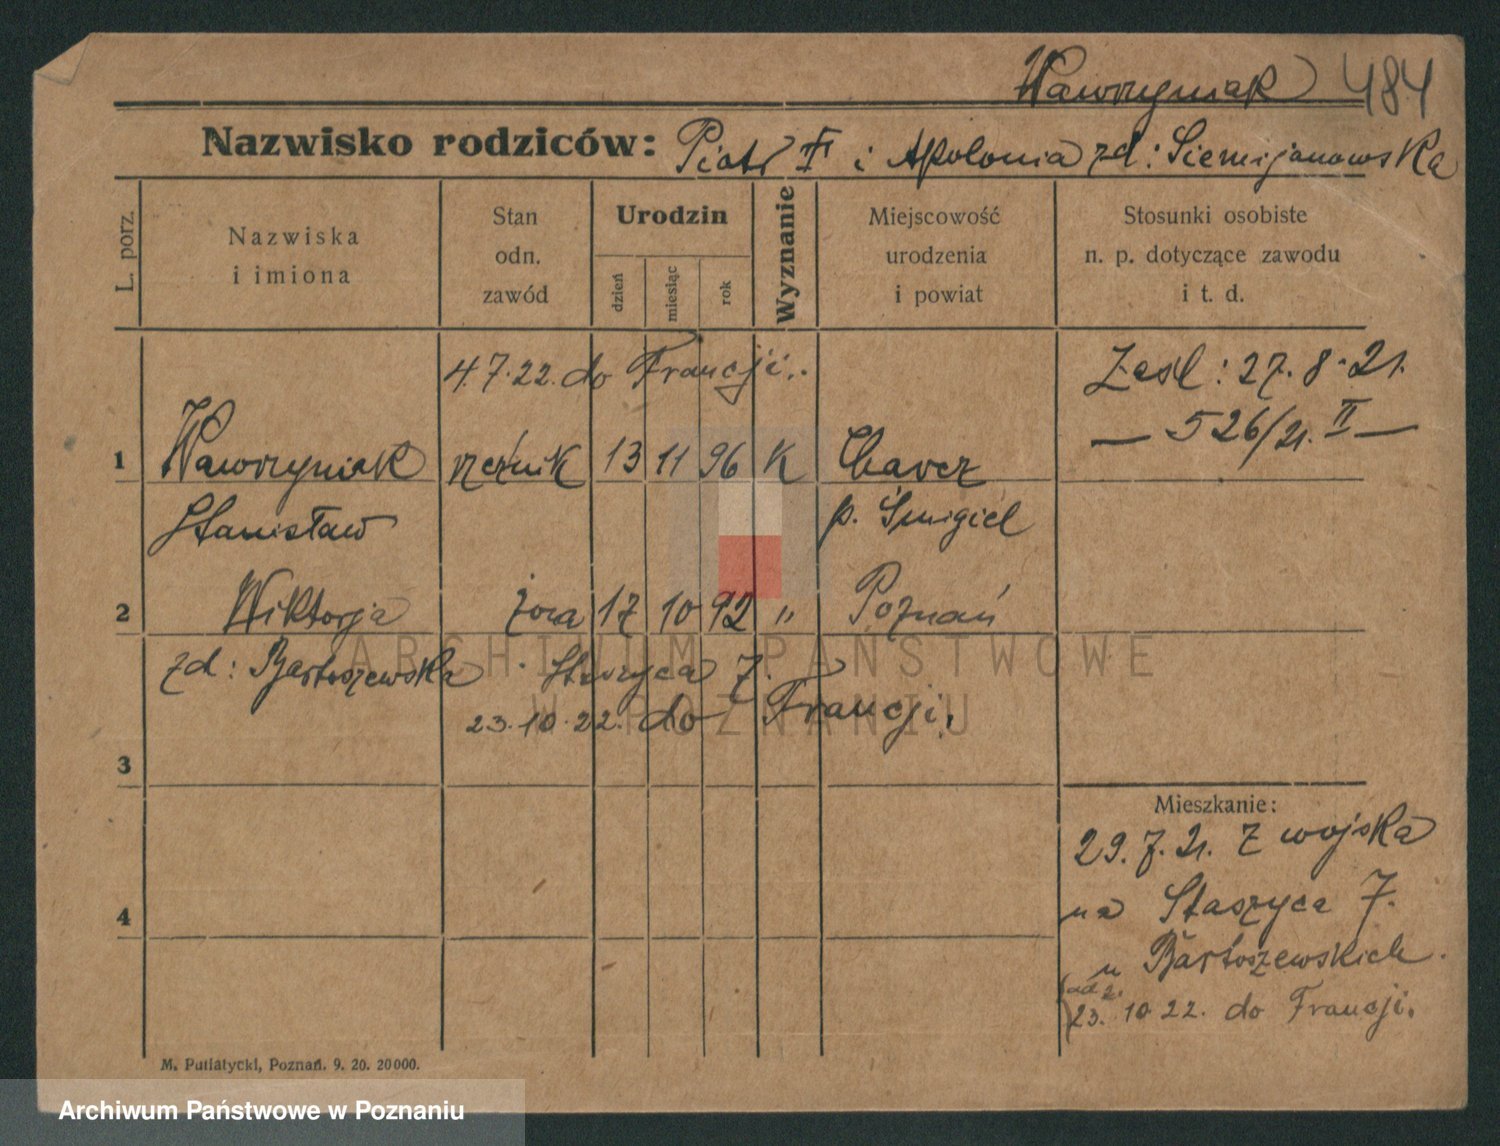 Wawrzyniak 484
Nazwisko rodziców: Piotr † i Apolonia zd: Siemijanowska
L. porz.
Nazwiska
i imiona
Stan
odn.
zawód
Urodzin
dzień
miesiąc
rok
Wyznanie
Miejscowość
urodzenia
i powiat
Stosunki osobiste
n. p. dotyczące zawodu
i t. d.
4.7.22. do Francji.
Zesl: 27.8.21.
— 526/21. II —
1 Wawrzyniak rzeźnik 13 11 96 K
Stanisław p. Śmigiel
2 Wiktorja żona 17 10 92 " Poznań
zd: Bartoszewska Staszyca 7.
23.10.22. do Francji.
3
Mieszkanie:
29.7.21. z wojska
na Staszyca 7.
u Bartoszewskich.
ad 2.
23. 10 22. do Francji.
4
M. Putiatycki, Poznań. 9. 20. 20000.
ARCHIWUM PAŃSTWOWE
W POZNANIU
Archiwum Państwowe w Poznaniu